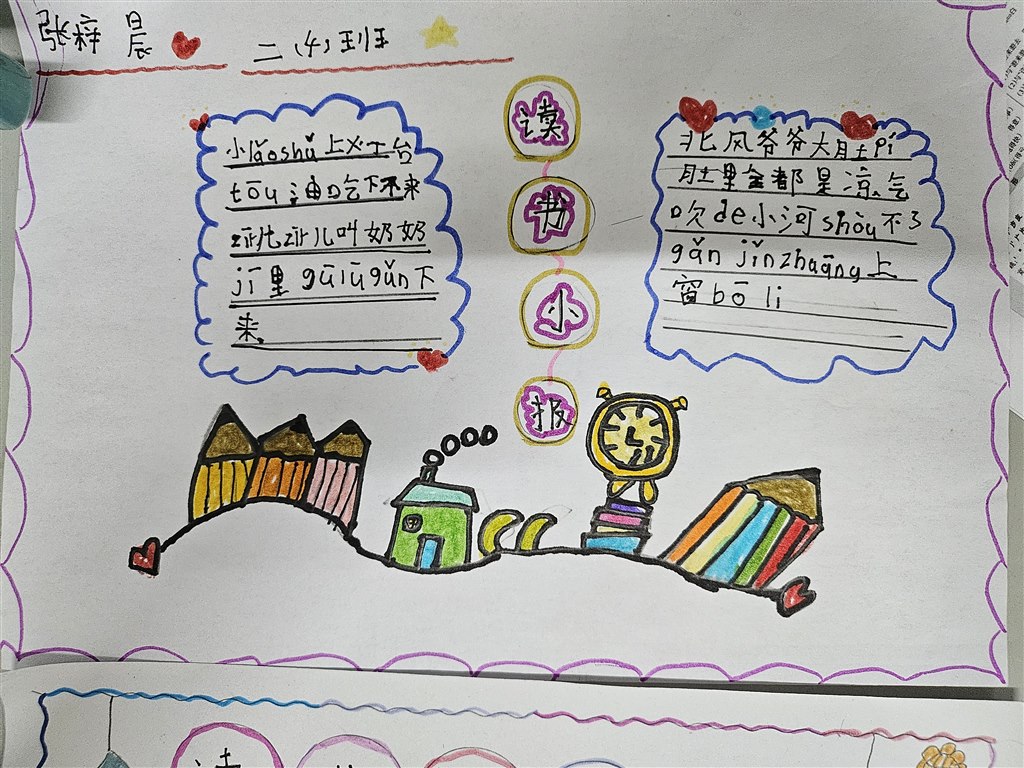 张梓晨
二(4)班
读书小报
小lǎoshǔ上火土台
tōu油吃下不来
吱吱儿叫奶奶
jī里gūlūgǔn下
来
北风爷爷大肚pí
肚里全都是凉气
吹de小河shòu不了
gǎn jǐnzhuāng上
窗bō li